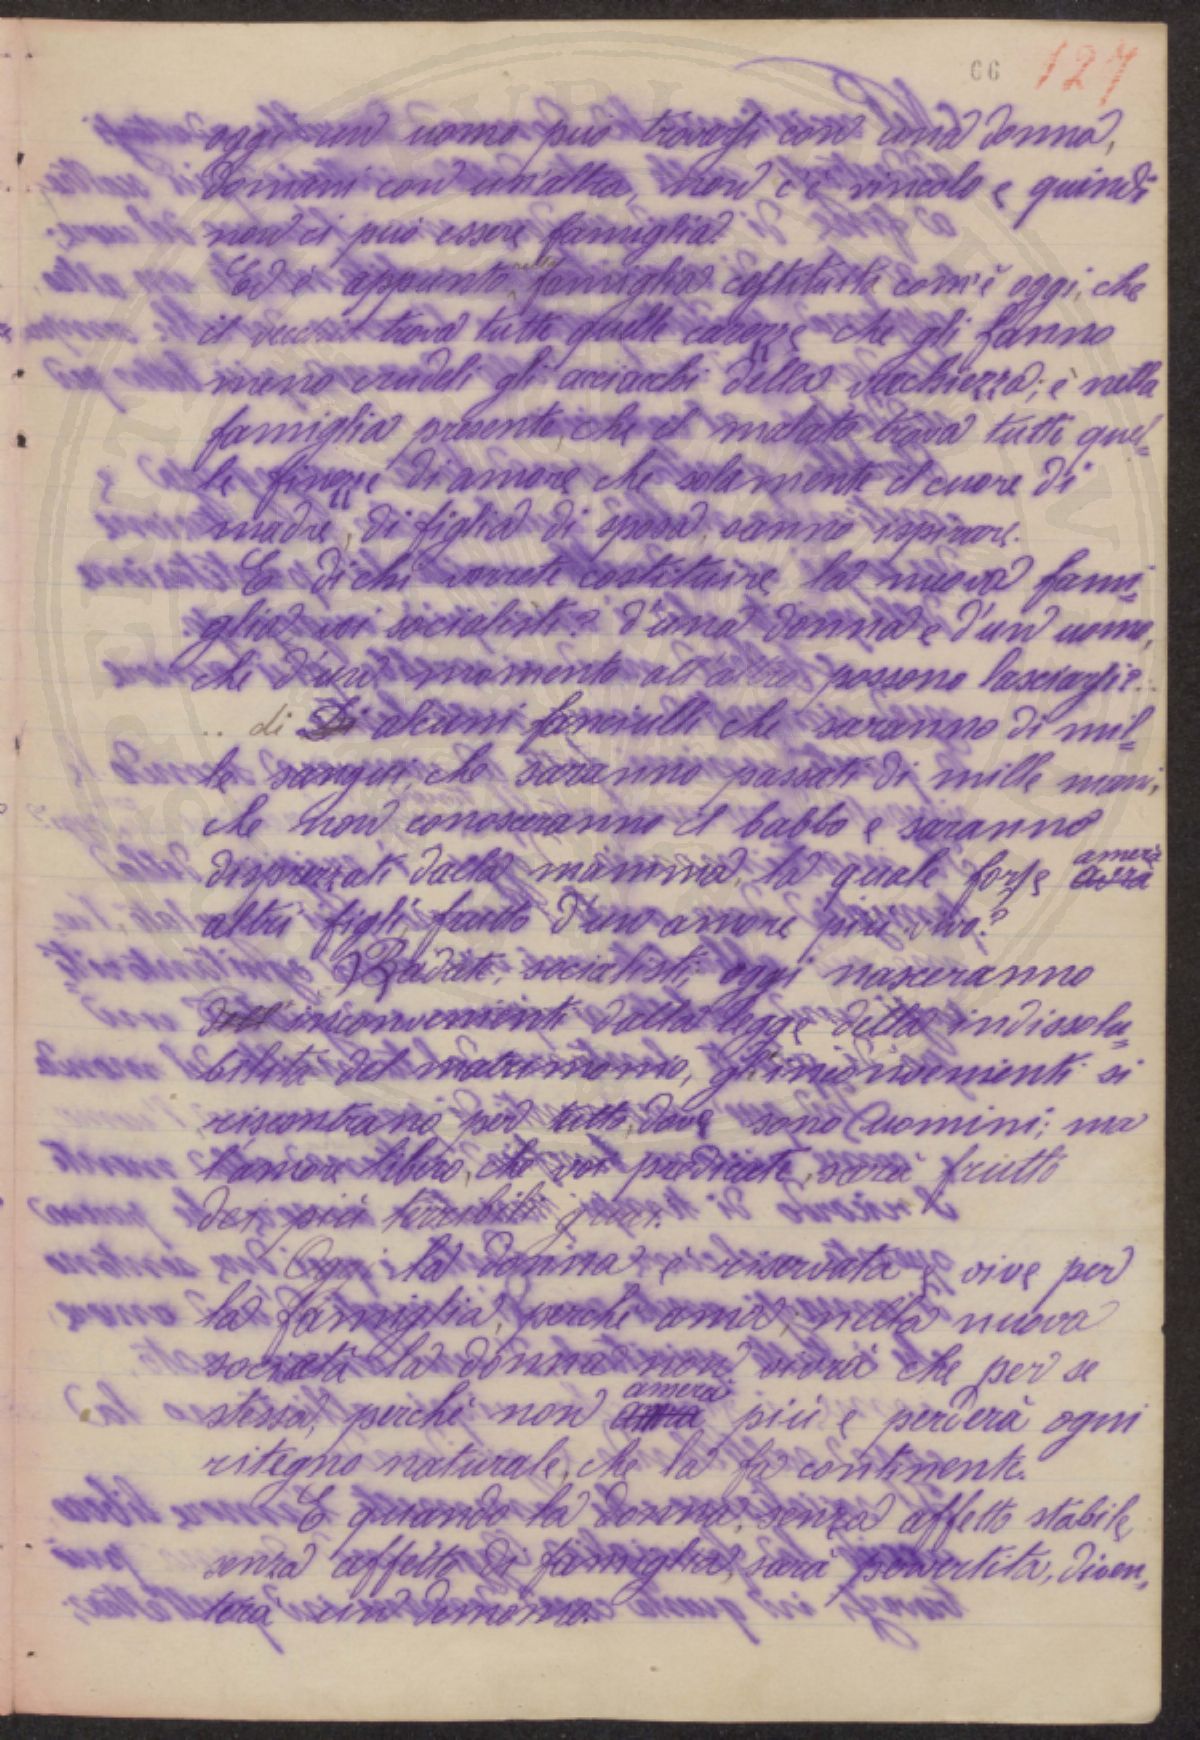 66 127
oggi un uomo può trovarsi con una donna,
domani con un'altra, non c'è vincolo e quindi
non ci può essere famiglia.
Ed è appunto nella famiglia costituita com'è oggi, che
il vecchio trova tutte quelle carezze che gli fanno
meno crudeli gli acciacchi della vecchiezza; è nella
famiglia presente, che il malato trova tutte quel=
le finezze di amore che solamente il cuore di
madre, di figlia di sposa, sanno ispirare.
E di chi vorrete costituire la nuova fami=
glia voi socialisti? d'una donna e d'un uomo,
che d'un momento all'altro possono lasciarsi?..
.. di Di alcuni fanciulli che saranno di mil=
le sangui, che saranno passati di mille mani,
che non conosceranno il babbo e saranno
disprezzati dalla mamma, la quale forse amerà avrà
altri figli, frutto d'un amore più vivo?
Badate, socialisti; oggi nasceranno
dell' inconvenienti dalla legge della indissolu=
bilità del matrimonio, gl'inconvenienti si
riscontrano per tutto, dove sono uomini; ma
l'amore libero, che voi predicate, sarà frutto
dei più terribili guai.
Oggi la donna è riservata e vive per
la famiglia, perchè ama; nella nuova
società la donna non vivrà che per se
stessa, perchè non amerà più e perderà ogni
ritegno naturale, che la fa continente.
E quando la donna, senza affetto stabile,
senza affetto di famiglia, sarà pervertita, diven=
terà un demonio.